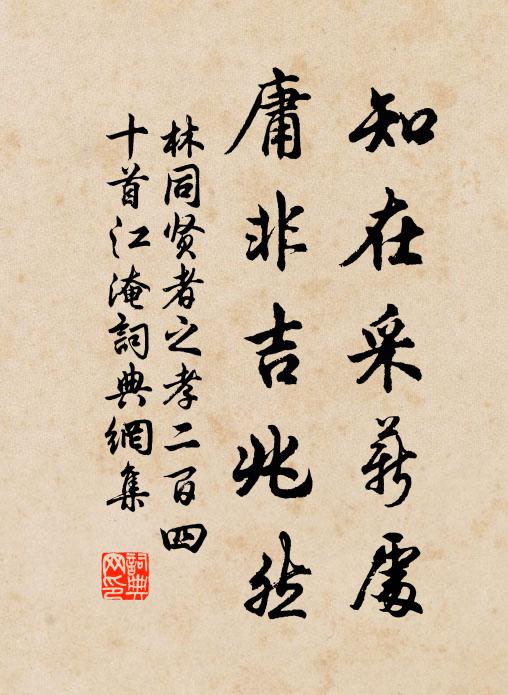 知在采薪處
庸非吉兆然
林同贤者之孝二百四
十首江淹詞典網集
詞典网印